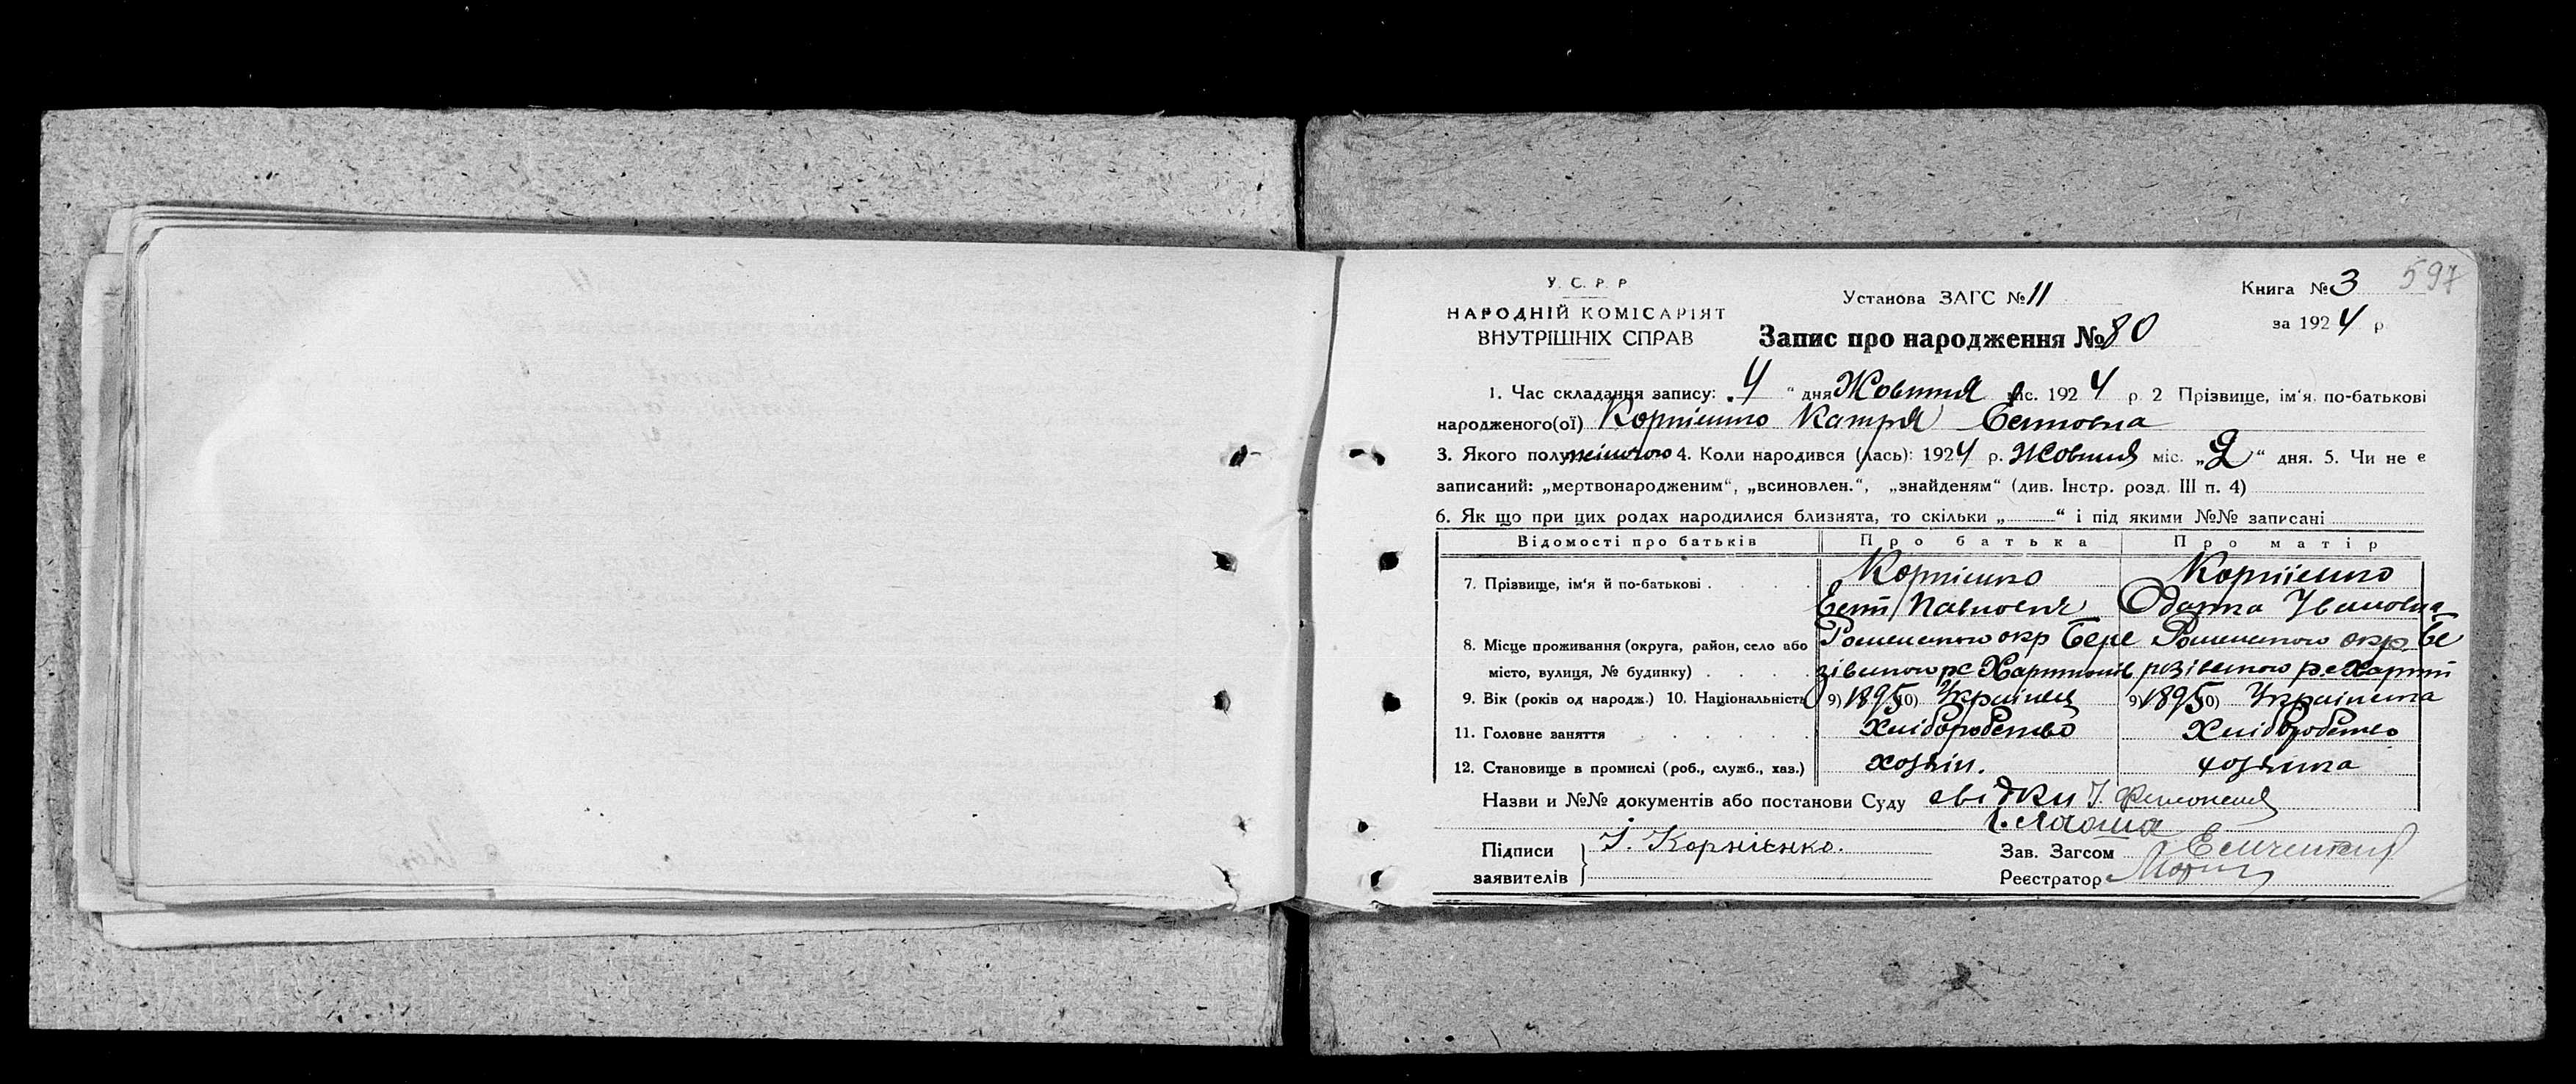 597
У. С. Р. Р
НАРОДНІЙ КОМІСАРІЯТ
ВНУТРІШНІХ СПРАВ
Установа ЗАГС № 11
Книга № 3
за 1924 р
Запис про народження № 80
1. Час складання запису: „4“ дня Жовтня міс. 1924 р. 2 Прізвище, ім'я, по-батькові
народженого(ої) Корнієнко Катря
3. Якого полу жіночого 4. Коли народився (лась): 1924 р. Жовтня міс. „2“ дня. 5. Чи не є
записаний: „мертвонародженим“, „всиновлен.“, „знайденям“ (див. Інстр. розд. III п. 4)
6. Як що при цих родах народилися близнята, то скільки „ “ і під якими №№ записані
Відомості про батьків Про батька Про матір
7. Прізвище, ім'я й по-батькові Корнієнко Корнієнко
Павлович Одарка Івановна
8. Місце проживання (округа, район, село або Роменського окр Бере Роменського окр Бе
місто, вулиця, № будинку) зівського рс
9. Вік (років од народж.) 10. Національність 9) 1895 10) Українец 9) 1895 10) Українка
11. Головне заняття Хліборобство Хліборобство
12. Становище в промислі (роб., служб., хаз.) хозяін. хозяйка
Назви и №№ документів або постанови Суду свідки
Підписи
заявителів
І. Корнієнко.
Зав. Загсом
Реєстратор